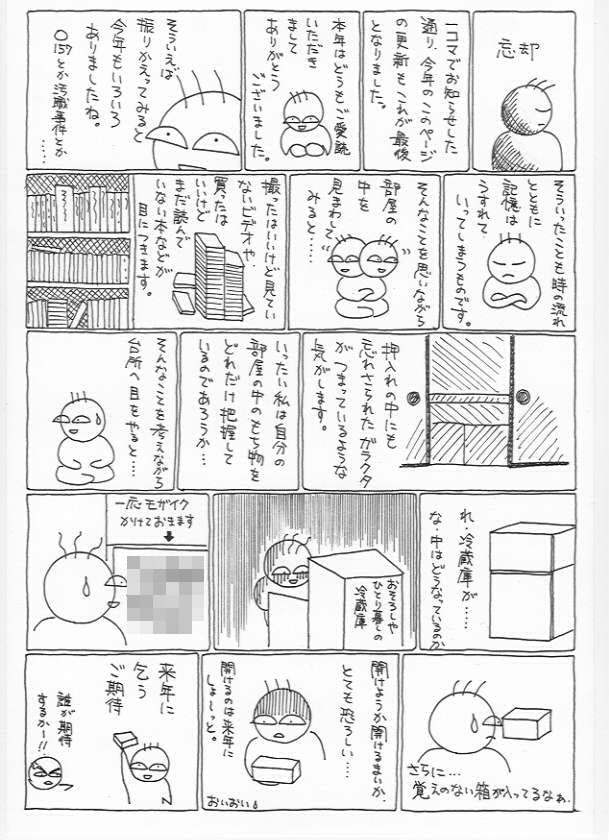 忘却
一コマでお知らせした
通り、今年のこのページ
の更新もこれが最後
となりました。
本年はどうもご愛読
いただき
まして
ありがとう
ございました。
そういえば
振りかえってみると
今年もいろいろ
ありましたね。
O157とか汚職事件とか
……
そういったことも時の流れ
とともに
記憶は
うすれて
いってしまうものです。
そんなことを思いながら
部屋の
中を
見まわして
みると……
撮ったはいいけど見てい
ないビデオや、
買ったは
いいけど
まだ読んで
いない本などが
目につきます。
押入れの中にも
忘れさられたガラクタ
がつまっているような
気がします。
いったい私は自分の
部屋の中のもち物を
どれだけ把握して
いるのであろうか…
そんなことを考えながら
台所へ目をやると…
れ・冷蔵庫が……
な・中はどうなっているのか
おそろしや
ひとり暮しの
冷蔵庫
一応モザイク
かけておきます
さらに…
覚えのない箱が入ってるなぁ.
開けようか開けるまいか.
とても恐ろしい…
開けるのは来年に
しよ〜っと。
おいおい
来年に
乞う
ご期待
誰が期待
するかー!!